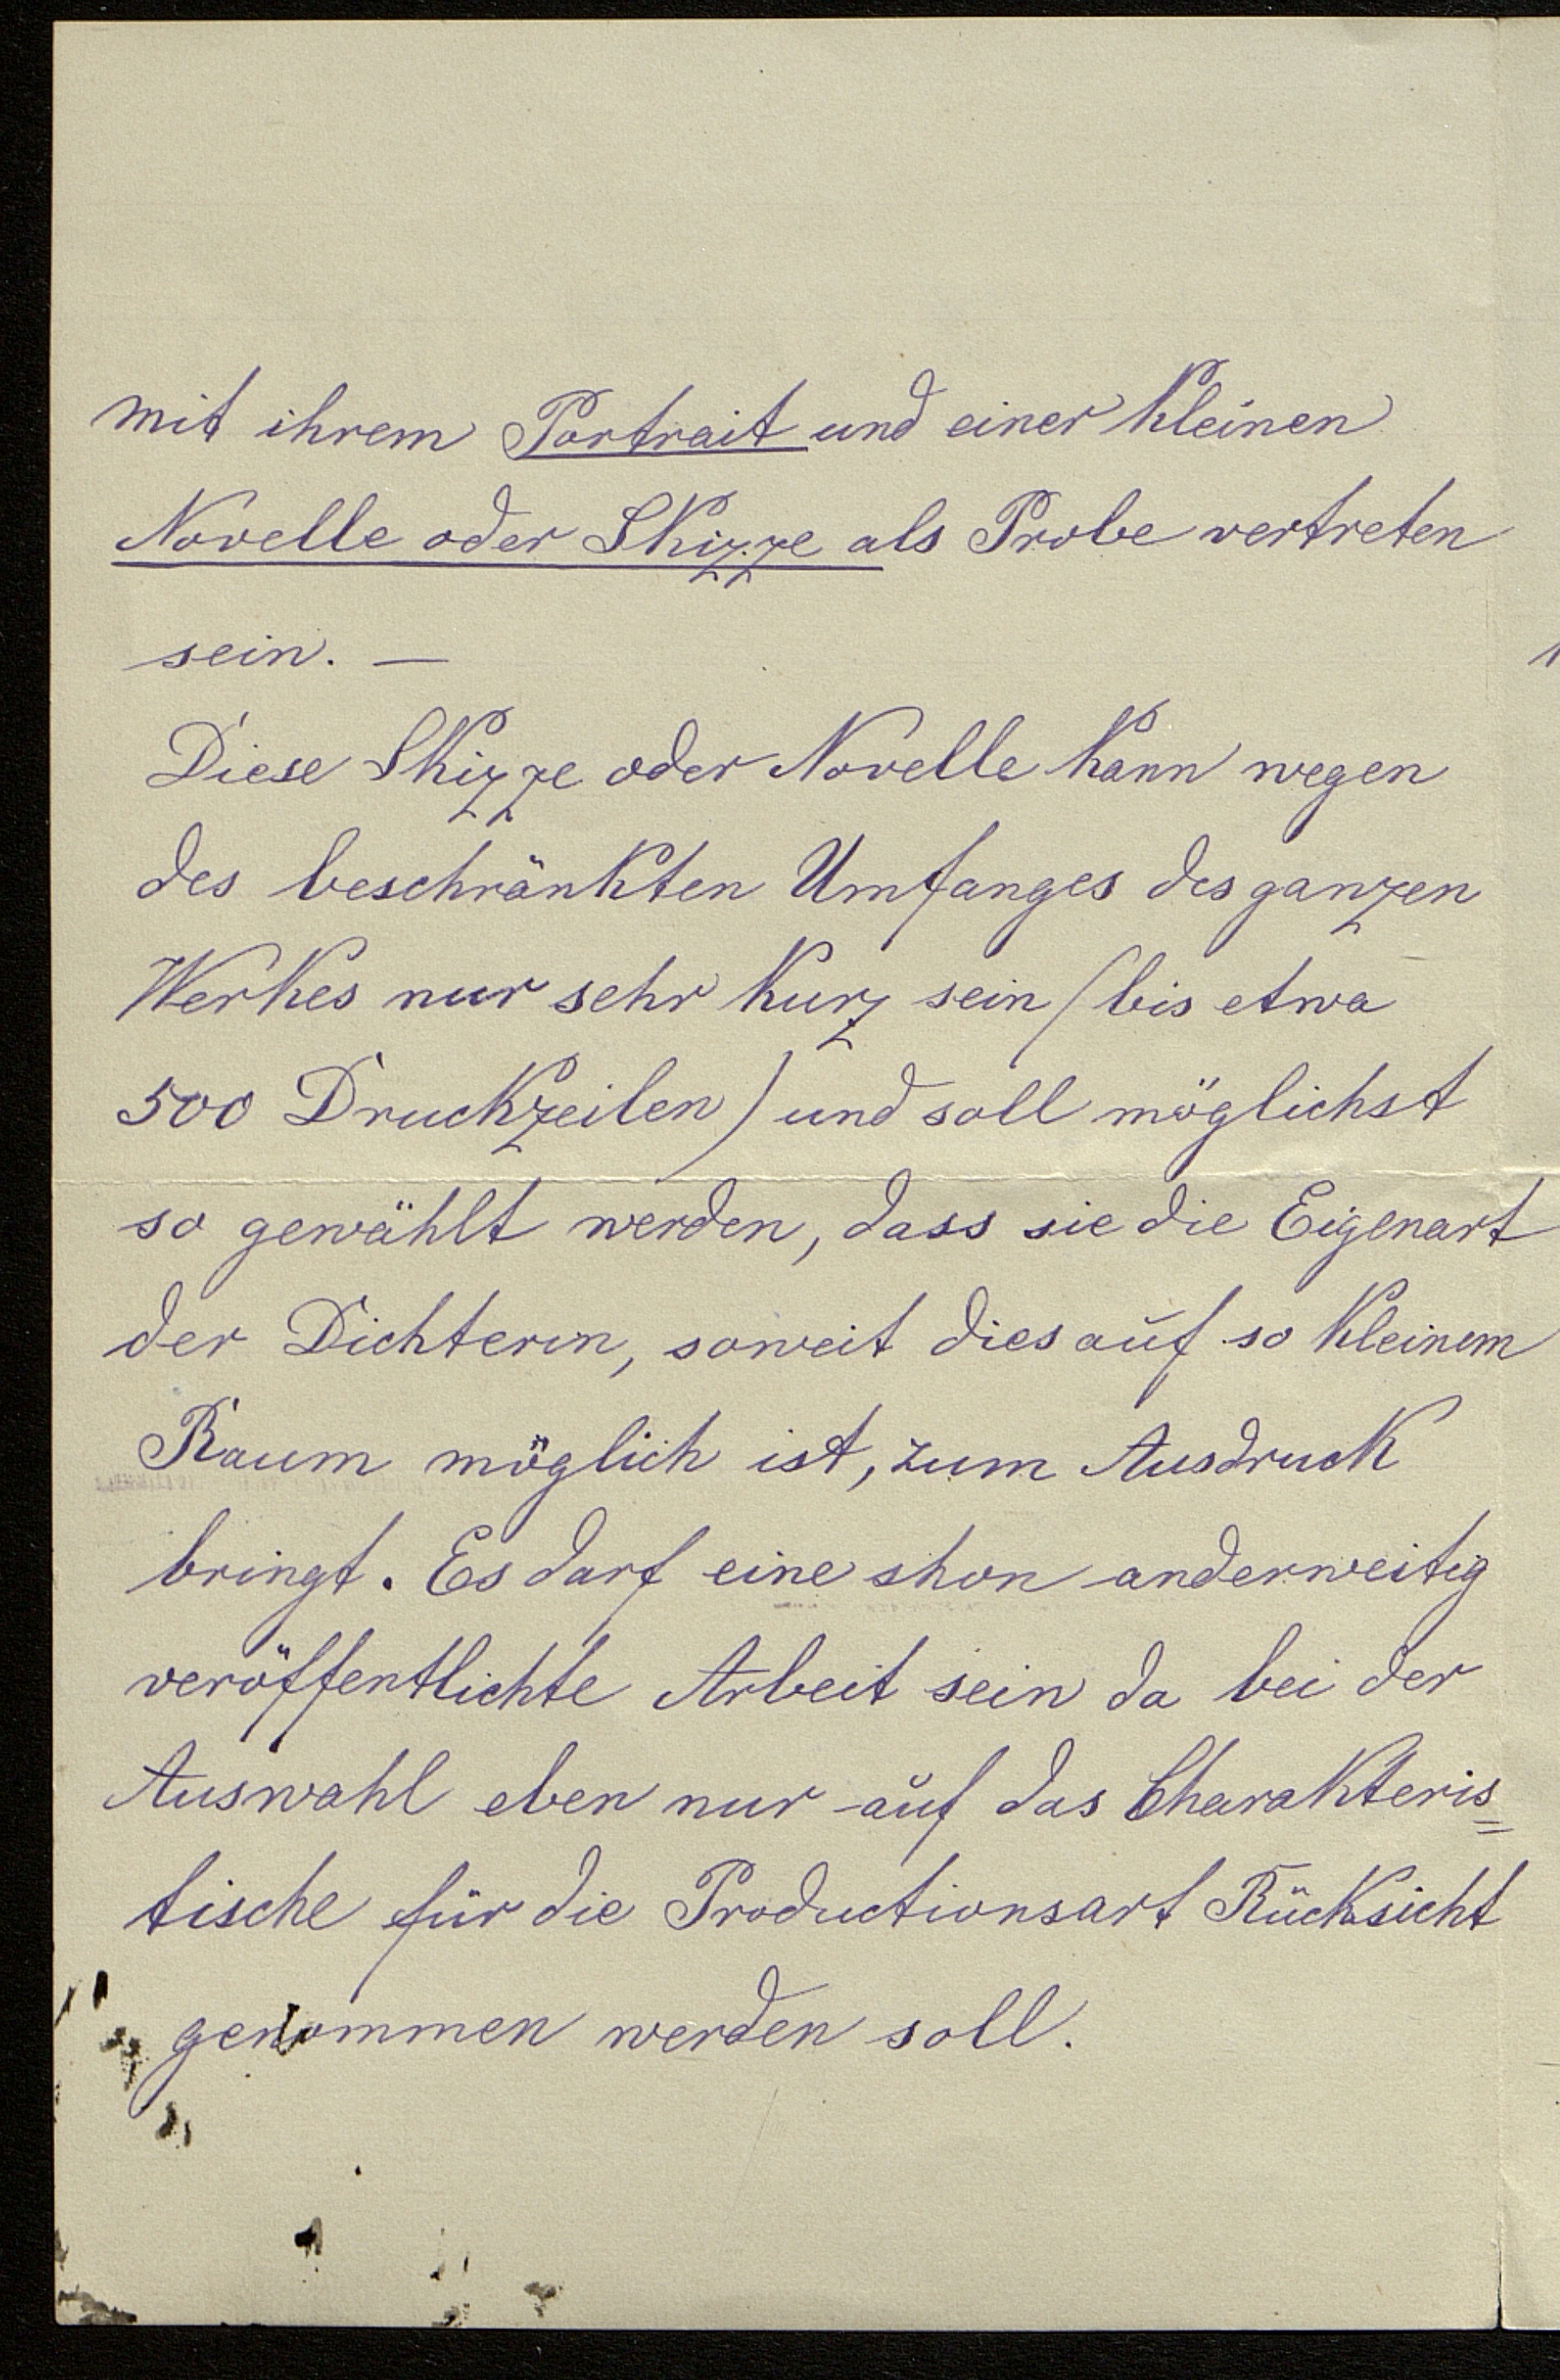 mit ihrem Portrait und einer kleinen
Novelle oder Skizze als Probe vertreten
sein. —
Diese Skizze oder Novelle kann wegen
des beschränkten Umfanges des ganzen
Werkes nur sehr kurz sein (bis etwa
500 Druckzeilen) und soll möglichst
so gewählt werden, dass sie die Eigenart
der Dichterin, soweit dies auf so kleinem
Raum möglich ist, zum Ausdruck
bringt. Es darf eine shon anderweitig
veröffentlichte Arbeit sein da bei der
Auswahl eben nur auf das Charakteris=
tische für die Productionsart Rücksicht
genommen werden soll.